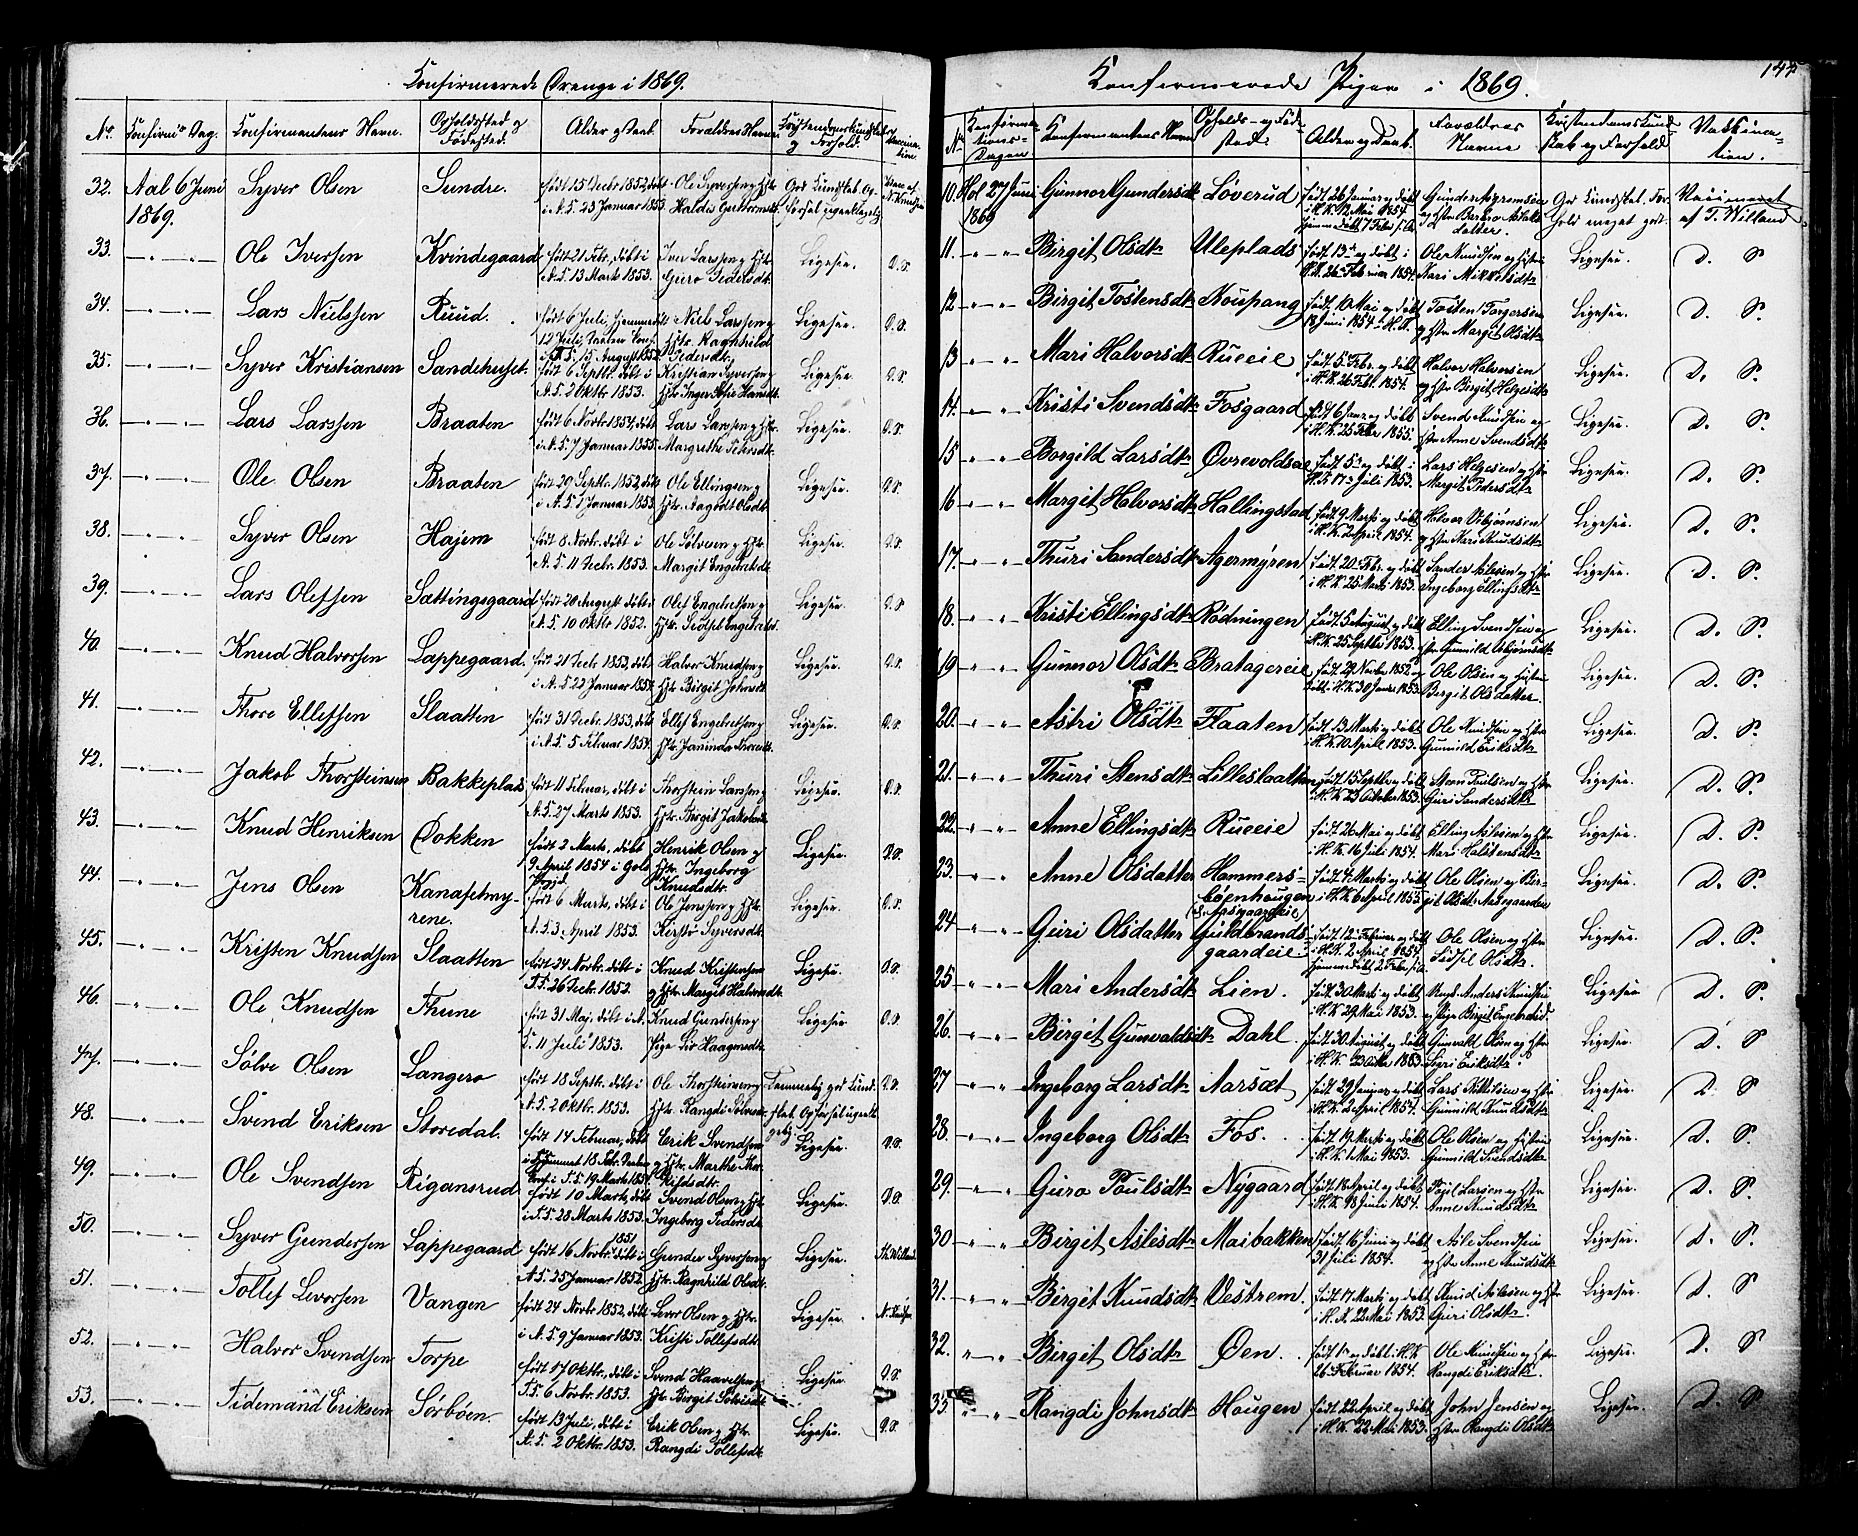 Konfirmerede Drenge i 1869.
No. Konfirms Dag. Konfirmantens Navn. Opholdssted og Fødested. Alder og Daab. Forældres Navne Kristendomskundskab og Forhold. Vaccination
32. Aal 6 Juni 1869. Syver Olsen Sundre. født 15 Decbr 1852, døbt i A. K. 23 Januar 1853. Ole Syversen og Hstr. Haldis Guttormsdt. God Kundskab. Og
33. Ole Iversen Kvindegaard født 21 Febr., døbt i A. K. 13 Marts 1853. Iver Larssen og Hstr. Guro Pedersdt. Ligesaa. D.S.
34. Lars Nielssen Ruud. født 6 Juli, hjemmedøbt 12 Juli, 15 August 1852. Niels Larssen og Hstr. Ragnhild Pedersdt. Ligesaa. D.S.
35. Syver Kristiansen Sandehuset. født 6 Septbr. døbt i A. K. 2 Oktbr. 1853. Kristian Syversen og Hstr. Inger Hansdt. Ligesaa D.S.
36. Lars Larssen Braaten født 6 Novbr 1854, døbt i A. K. 7 Januar 1855. Lars Larssen og Hstr. Margrethe Pehrsdt. Ligesaa. D.S.
37. Ole Olsen Braaten født 29 Septbr. 1852, døbt i A. K. 1 Januar 1853. Ole Ellingsen og Hstr. Aagodt Olsdt. Ligesaa. D.S.
38. Syver Olsen Hajem født 8 Novbr. døbt i A. K. 11 Decbr. 1853. Ole Sølvesen og Hstr. Margit Engebretsdt. Ligesaa. D.S.
39. Lars Olefsen Sættingsgaard født 20 August døbt i A. K. 10 Oktbr 1852. Olef Engebretsen og Hstr. Engebretsdt. Ligesaa. D.S.
40. Knud Halvorsen Lappegaard. født 21 Decbr. 1853, døbt i A. K. 22 Januar 1854. Halvor Knudsen og Hstr. Birgit Johnsdt. Ligesaa. D.S.
41. Thore Ellefsen Slaatten født 31 Decbr. 1853, døbt i A. K. 5 Februar 1854. Ellef Engebretsen og Hstr. Thoresdt. Ligesaa. D.S.
42. Jakob Thorsteinsen Bakkeplads født 11 Februar, døbt i A. K. 27 Marts 1853. Thorstein Larssen og Hstr. Birgit Jakobsdt. Ligesaa. D.S.
43. Knud Henriksen Dokken født 2 Marts, døbt 9 April 1854 i Gols Henrik Olsen og Hstr. Ingeborg Knudsdtr. Ligesaa. D.S.
44. Jens Olsen Kanasetmyrene. født 6 Marts, døbt i A. K. 3 April 1853. Ole Jenssen og Hstr. Syversdt. Ligesaa. D.S.
45. Kristen Knudsen Slaatten født 24 Novbr. døbt i T. K. 26 Decbr. 1852. Knud Kristensen og Hstr. Margit Halvorsdt. Ligesaa. D.S.
46. Ole Knudsen Thune født 31 Maj, døbt i A. K. 11 Juli 1853. Knud Gundersen og Pige Liv Haagensdt. Ligesaa D.S.
47. Sølve Olsen Langero født 18 Septbr. døbt i A. K. 2 Oktbr. 1853. Ole Thorsteinsen og Hstr. Rangdi Sølvesdt. Temmelig god Kundskab. Og D.S.
48. Svend Eriksen Storedal. født 14 Februar, døbt i Hjemmet 18 Febr. 19 Marts 1854. Erik Svendsen og Hstr. Marthe Ligesaa. D.S.
49. Ole Svendsen Rigansrud. født 10 Marts, døbt i T. K. 28 Marts 1853. Svend Olsen og Hstr. Ingeborg Pedersdt. Ligesaa. D.S.
50. Syver Gundersen Lappegaard født 16 Novbr. 1851 døbt i A. K. 25 Januar 1852. Gunder Syversen og Hstr. Ragnhild Olsdt. Ligesaa. Th. Willand.
51. Tollef Levorsen Vangen født 24 Novbr. 1852, døbt i A. K. 9 Januar 1853. Levor Olsen og Hstr. Kristi Tollefsdt. Ligesaa. N. Knudsen
52. Halvor Svendsen Torpe født 17 Oktbr., døbt i T. K. 6 Novbr. 1853. Svend Haavelsen og Hstr. Birgit Ligesaa. D.S.
53. Tidemand Eriksen Sørbøen. født 13 Juli, døbt i A. K. 2 Oktbr. 1853. Erik Olsen og Hstr. Rangdi Tollefsdt. Ligesaa. D.S.
Konfirmerede Piger i 1869.
144
No Konfirmationsdagen Konfirmantens Navn Opholds- og Fødested. Alder og Daab. Forældres Navne Kristendomskundskab og Forhold Vakkination.
10. Hol 27 Juni 1869 Gunnor Gundersdt Løverud født 26 Januar og døbt i H. K. 12 Mai 1854. hjemmedøbt 7 Febr. Gunder og Hstr Aslakdatter. God Kundskab. Forhold meget godt. Vaccineret af T. Willand
11. Birgit Olsdtr Uleplads født 13de døbt i H. K. 26 Februar 1854. Ole Knudsen og Hstr Kari Mikkelsdtr Ligesaa. D. S.
12 Birgit Tostensdtr Noupang født 10 Mai og døbt 18 Juni 1854 i H. K. Tosten Torgersen og Hstr Margit Olsdtr Ligesaa. D. S.
13 Mari Halvorsdtr Rueeie født 5 Febr. og døbt i H. K. 26 Febr. 1854. Halvor Halvorsen og Hstr Birgit Helgesdtr Ligesaa. D. S.
14. Kristi Svendsdtr Fosgaard født 6 Januar og døbt i H. K. 25 Febr 1855. Svend Knudsen og Hstr Anne Svendsdtr Ligesaa. D. S.
15 Borgild Larsdtr Øvrevoldseie født 5 og døbt i H. K. 17 Juli 1853. Lars Helgesen og Hstr Margit Pedersdtr Ligesaa. D. S.
16 Margit Halvorsdtr Hallingstad født 9 Marts og døbt i H. K. 2 April 1854. Halvor Asbjørnsen og Hstr Kari Knudsdtr Ligesaa. D. S.
17. Thuri Sandersdtr Agermyren født 20 Febr. og døbt i H. K. 25 Marts 1853. Sander Aslesen og Hstr Ingeborg Ellingsdtr Ligesaa. D. S.
18. Kristi Ellingsdtr Rødningen født 5 August og døbt i H. K. 25 Septbr 1853. Elling Svendsen og Hstr Gunnild Asbjørnsdtr Ligesaa. D. S.
19 Gunnor Olsdtr Bratagereie født 29 Novbr 1852 og døbt i H. K. 30 Januar 1853. Ole Olsen og Hustru Birgit Olsdatter. Ligesaa. D. S.
20. Astri Olsdtr Flaaten født 13 Marts og døbt i H. K. 10 April 1853. Ole Knudsen og Hstr Gunnild Eriksdtr Ligesaa. D. S.
21. Thuri Stensdtr Lilleslaatten født 15 Septbr og døbt i H. K. 23 Oktober 1853. Steen Poulsen og Hstr Guri Sandersdtr Ligesaa. D. S.
22. Anne Ellingsdtr Rueeie født 26 Mai og døbt i H. K. 16 Juli 1854. Elling Aslesen og Hstr Mari Halstensdtr Ligesaa. D. S.
23. Anne Olsdatter Hammersbøenhougen født 4 Marts og døbt i H. K. 6 April 1855 Ole Olsen og Birgit Olsdtr Ligesaa. D. S.
24 Guri Olsdatter Guldbrandsgaardeie. født 12 Februar og døbt i H. K. 2 April 1854. hjemmedøbt 2 Febr. Ole Olsen og Hstr Sidsel Olsdtr. Ligesaa. D. S.
25 Mari Andersdtr Lien. født 30 Marts og døbt i H. K. 29 Mai 1853. Anders Knudsen og Pige Birgit Engebretsd. Ligesaa D. S.
26. Birgit Gunvaldsdtr Dahl. født 30 August og døbt i H. K. 23 Oktbr 1853 Gunvald Olsen og Hstr Sigri Eriksdtr. Ligesaa. D. S.
27 Ingeborg Larsdtr Aarsæt født 29 Januar og døbt i H. K. 2 April 1854. Lars Kittilsen og Hstr Gunnild Knudsdtr Ligesaa. D. S.
28. Ingeborg Olsdtr Fos. født 19 Marts og døbt i H. K. 1 Mai 1853. Ole Olsen og Hustru Gunnild Svendsdtr Ligesaa. D. S.
29. Guro Poulsdtr Nygaard født 18 April og døbt i H. K. 18 Juni 1854. Larsen og Hstr Anne Knudsdtr Ligesaa. D. S.
30 Birgit Aslesdtr Maibakken født 16 Juni og døbt 31 Juli 1854. Asle Svendsen og Hstr Anne Knudsdtr Ligesaa. D. S.
31. Birgit Knudsdtr Vestrem. født 17 Marts og døbt i H. K. 22 Mai 1853. Knud Aslesen og Hstr Guri Olsdtr. Ligesaa. D. S.
32. Birgit Olsdtr Øen. født 1 og døbt i H. K. 26 Februar 1854. Ole Knudsen og Hstr Rangdi Eriksdtr. Ligesaa. D. S.
33. Rangdi Johnsdtr Hougen født 22 April og døbt i H. K. 22 Mai 1853. John Jensen og Hstr Rangdi Olsdtr Ligesaa. D. S.